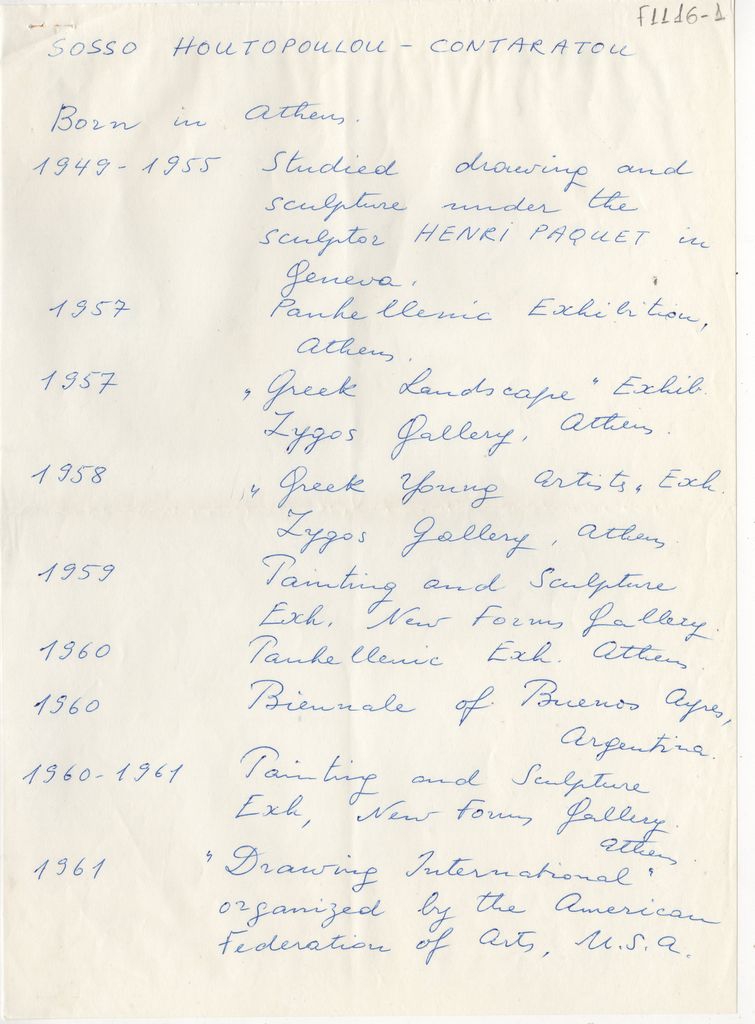 F1116-1
SOSSO HOUTOPOULOU - CONTARATOU
Born in Athens.
1949-1955 Studied drawing and
sculpture under the
sculptor HENRI PAQUET in
Geneva.
1957 Panhellenic Exhibition,
Athens.
1957 „Greek Landscape" Exhib.
Zygos Gallery, Athens.
1958 „Greek Young Artists„ Exh.
Zygos Gallery, Athens
1959 Painting and Sculpture
Exh. New Forms Gallery.
1960 Panhellenic Exh. Athens.
1960 Biennale of Buenos Ayres,
Argentina.
1960-1961 Painting and Sculpture
Exh, New Forms Gallery.
Athens.
1961 "Drawing International"
organized by the American
Federation of Arts, U.S.A.